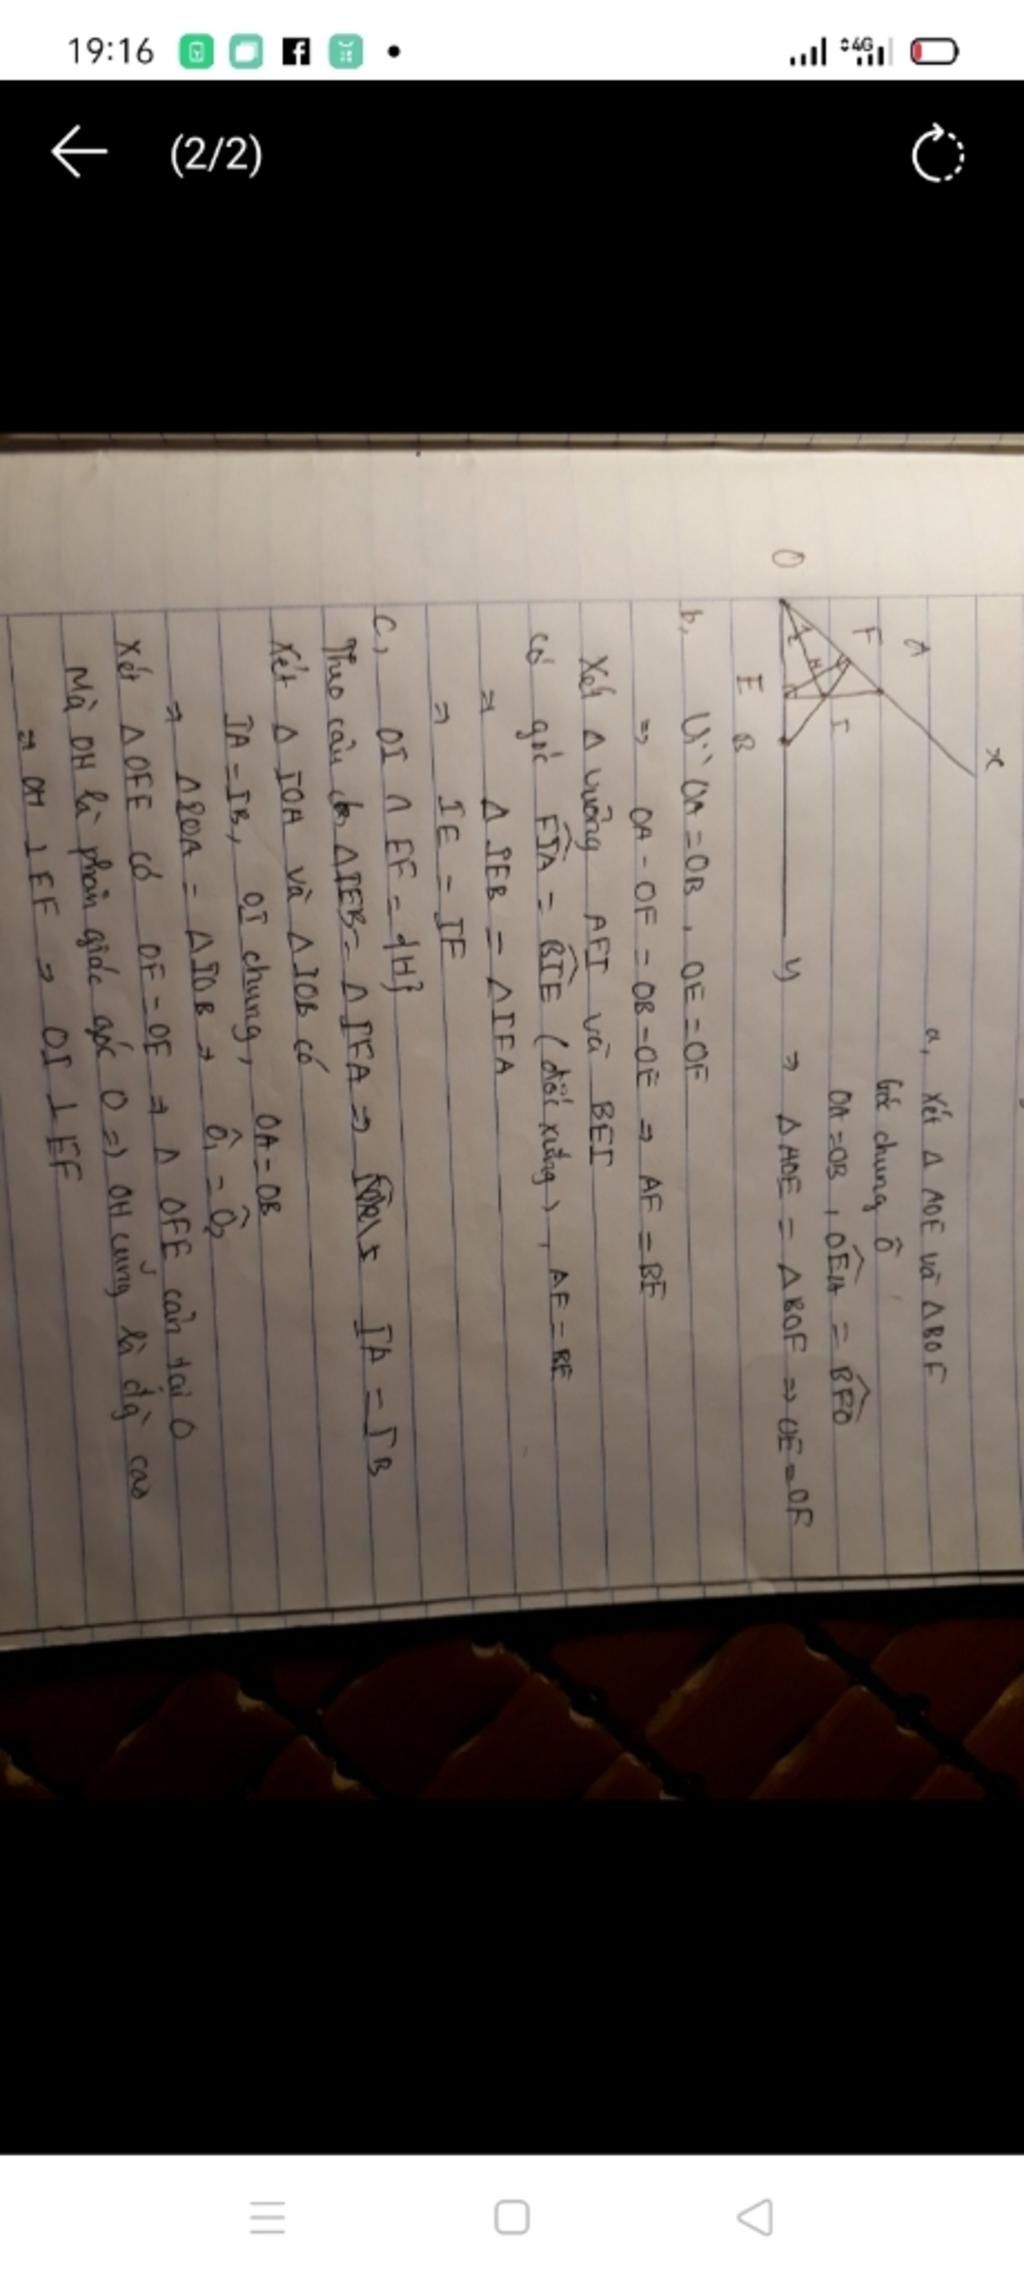 19:16
4G
(2/2)
x
A
F
I
H
O
E B
y
a, Xét Δ AOE và Δ BOF
Góc chung Ô
OA = OB, OÊA = BF̂O
=> Δ AOE = Δ BOF => OE = OF
b, Vì OA = OB, OE = OF
=> OA - OF = OB - OE => AF = BE
Xét Δ vuông AFI và BEI
có góc FÎA = BÎE (đối xứng), AF = BE
=> Δ IEB = Δ IFA
=> IE = IF
c, OI ∩ EF = {H}
Theo câu b, Δ IEB = Δ IFA => IA = IB
Xét Δ IOA và Δ IOB có
IA = IB, OI chung, OA = OB
=> Δ IOA = Δ IOB => Ô1 = Ô2
Xét Δ OFE có OF = OE => Δ OFE cân tại O
Mà OH là phân giác góc O => OH cũng là đg cao
=> OH ⊥ EF => OI ⊥ EF